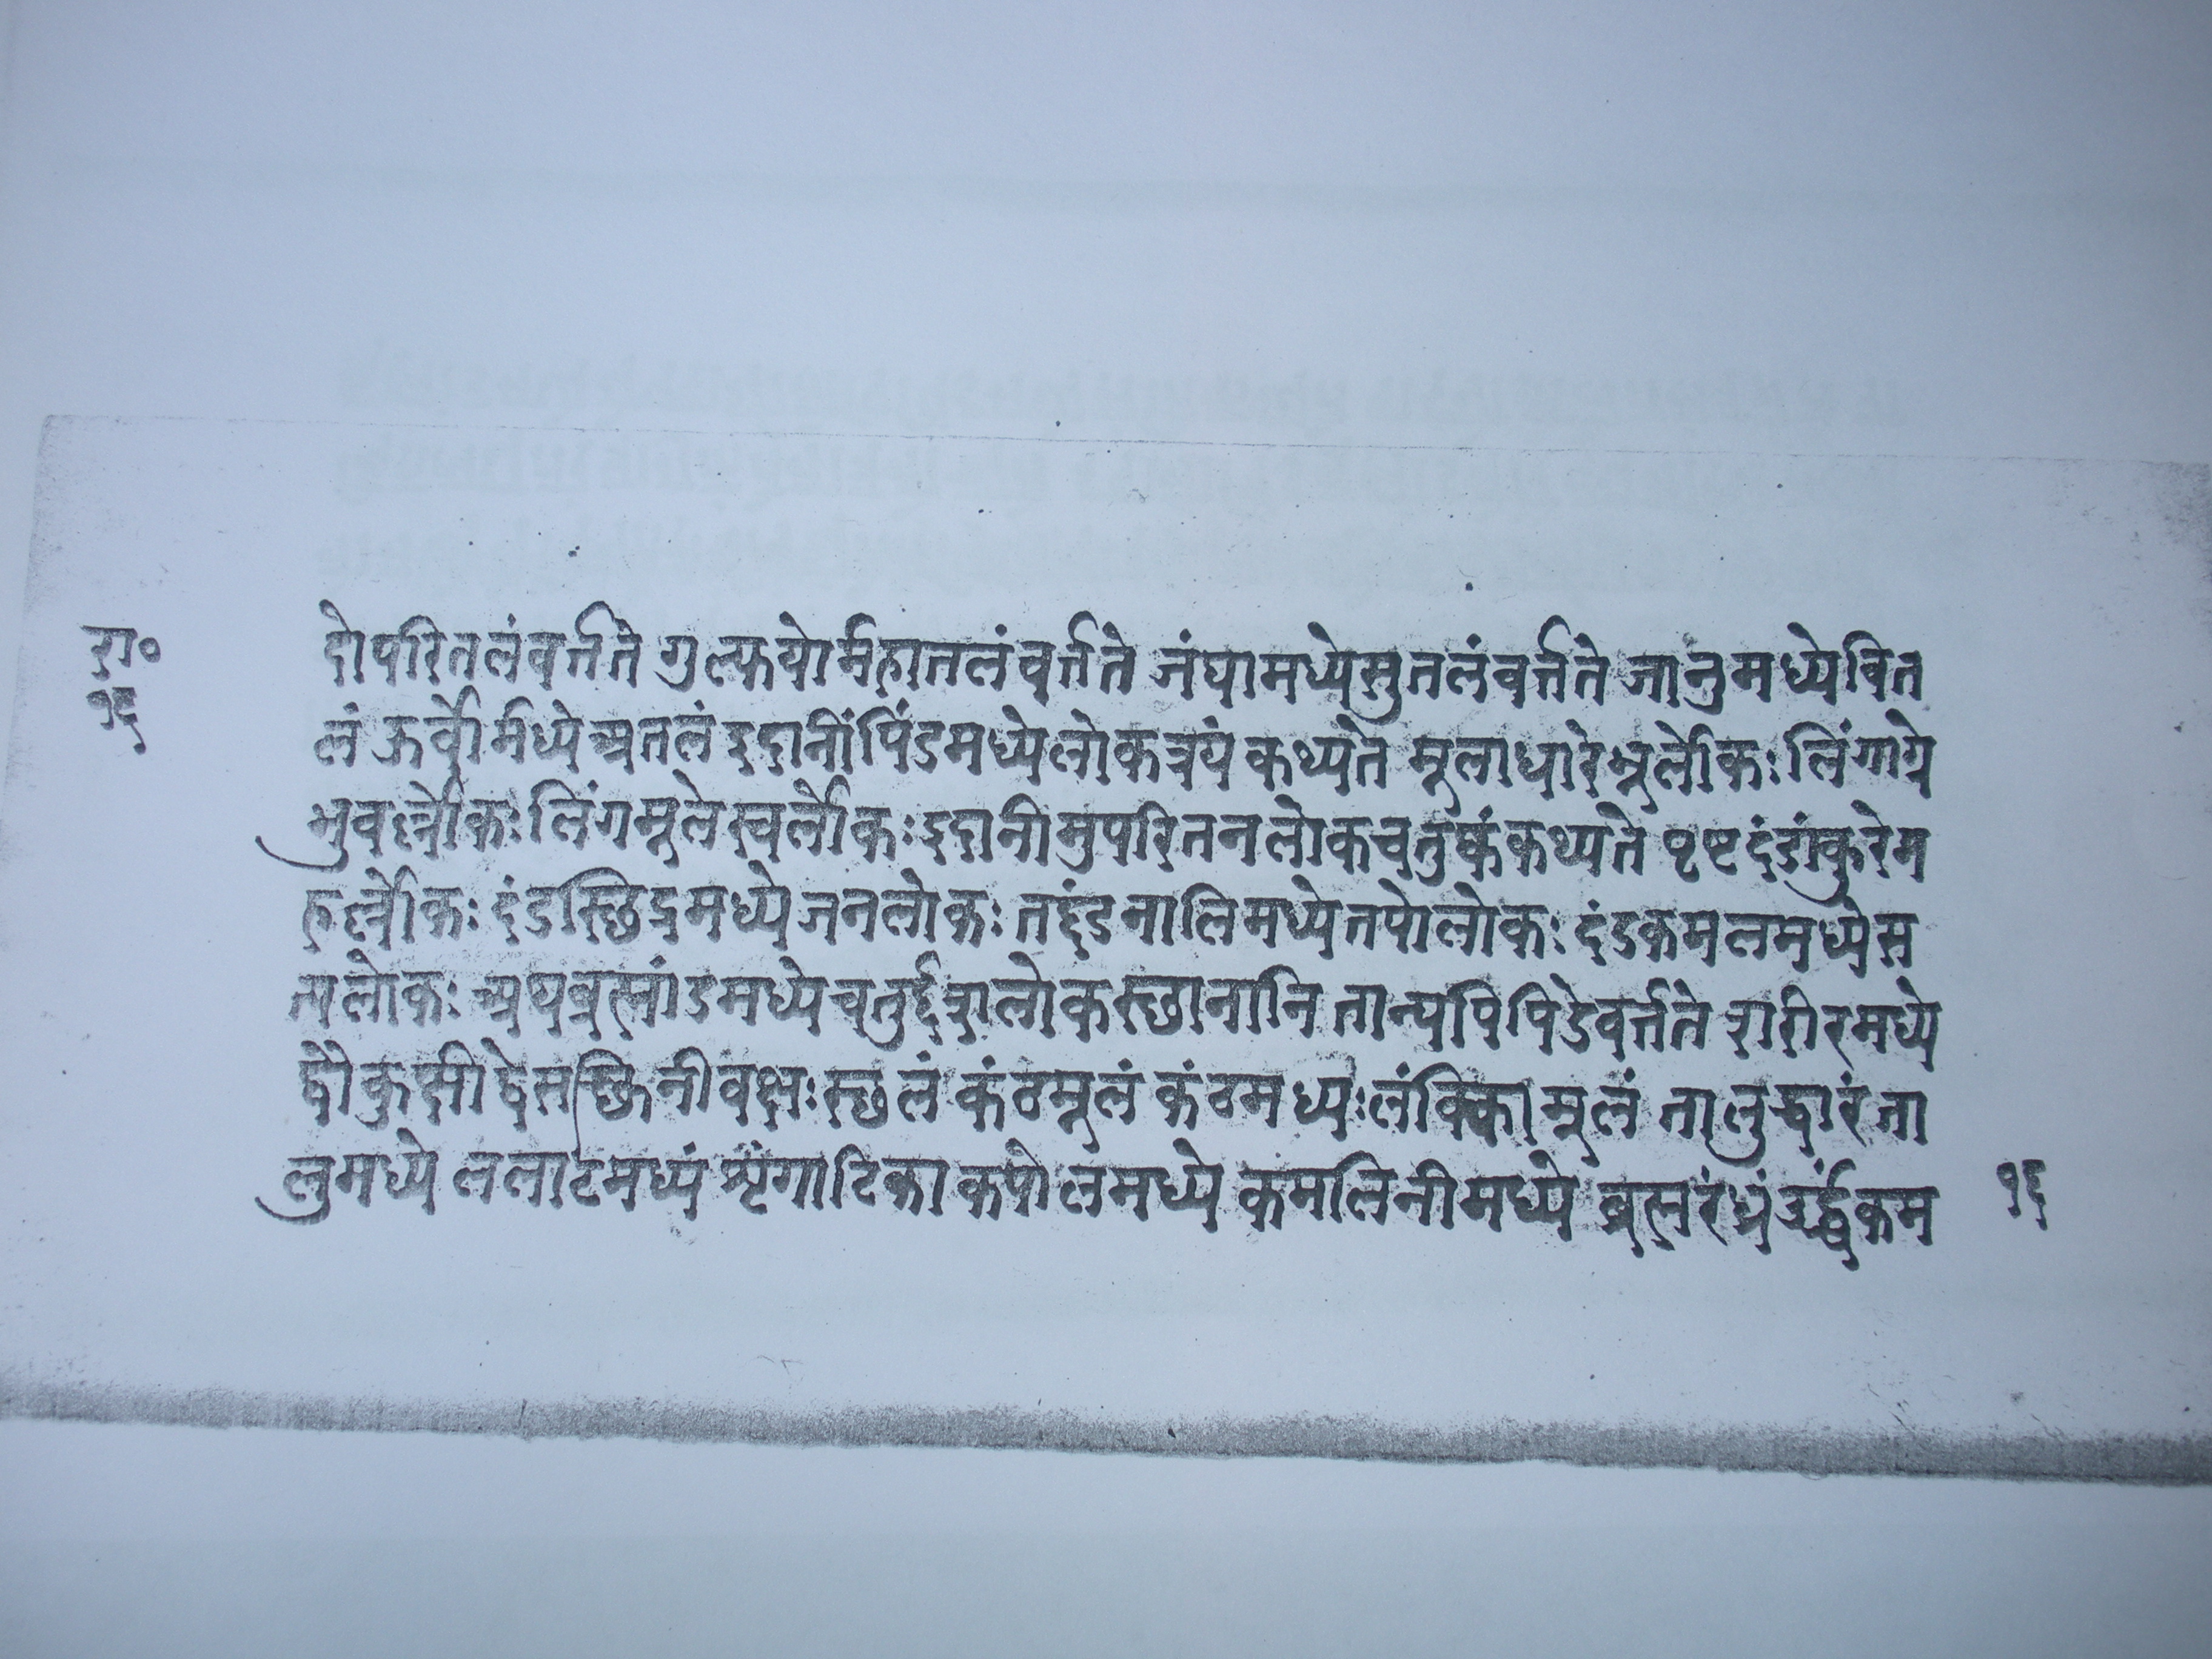 रा०
१६
दोपरितलंवर्त्तते गुल्फयोर्महातलंवर्त्तते जंघामध्येसुतलंवर्त्तते जानुमध्येवित
लं ऊर्वोर्मध्ये अतलं इदानींपिंडमध्येलोकत्रयं कथ्यते मूलाधारेभूर्लोकः लिंगाग्रे
भुवर्ल्लोकः लिंगमूलेस्वर्लोकः इदानीमुपरितनलोकचतुष्कंकथ्यते पृष्टदंडांकुरेम
हर्ल्लोकः दंडस्छिद्रमध्येजनलोकः तद्दंडनालिमध्येतपोलोकः दंडकमलमध्येस
त्यलोकः अथब्रह्मांडमध्येचतुर्द्दशलोकस्छानानि तान्यपिपिंडेवर्त्तते शरीरमध्ये
द्वौकुक्षीद्वेसक्छिनीवक्षःस्छलं कंठमूलं कंठमध्यःलंक्विकामूलं तालुद्वारं ता
लुमध्ये ललाटमध्यं शृंगाटिका कपोलमध्ये कमलिनीमध्ये ब्रह्मरंध्रं उर्द्ध्वकम
१६